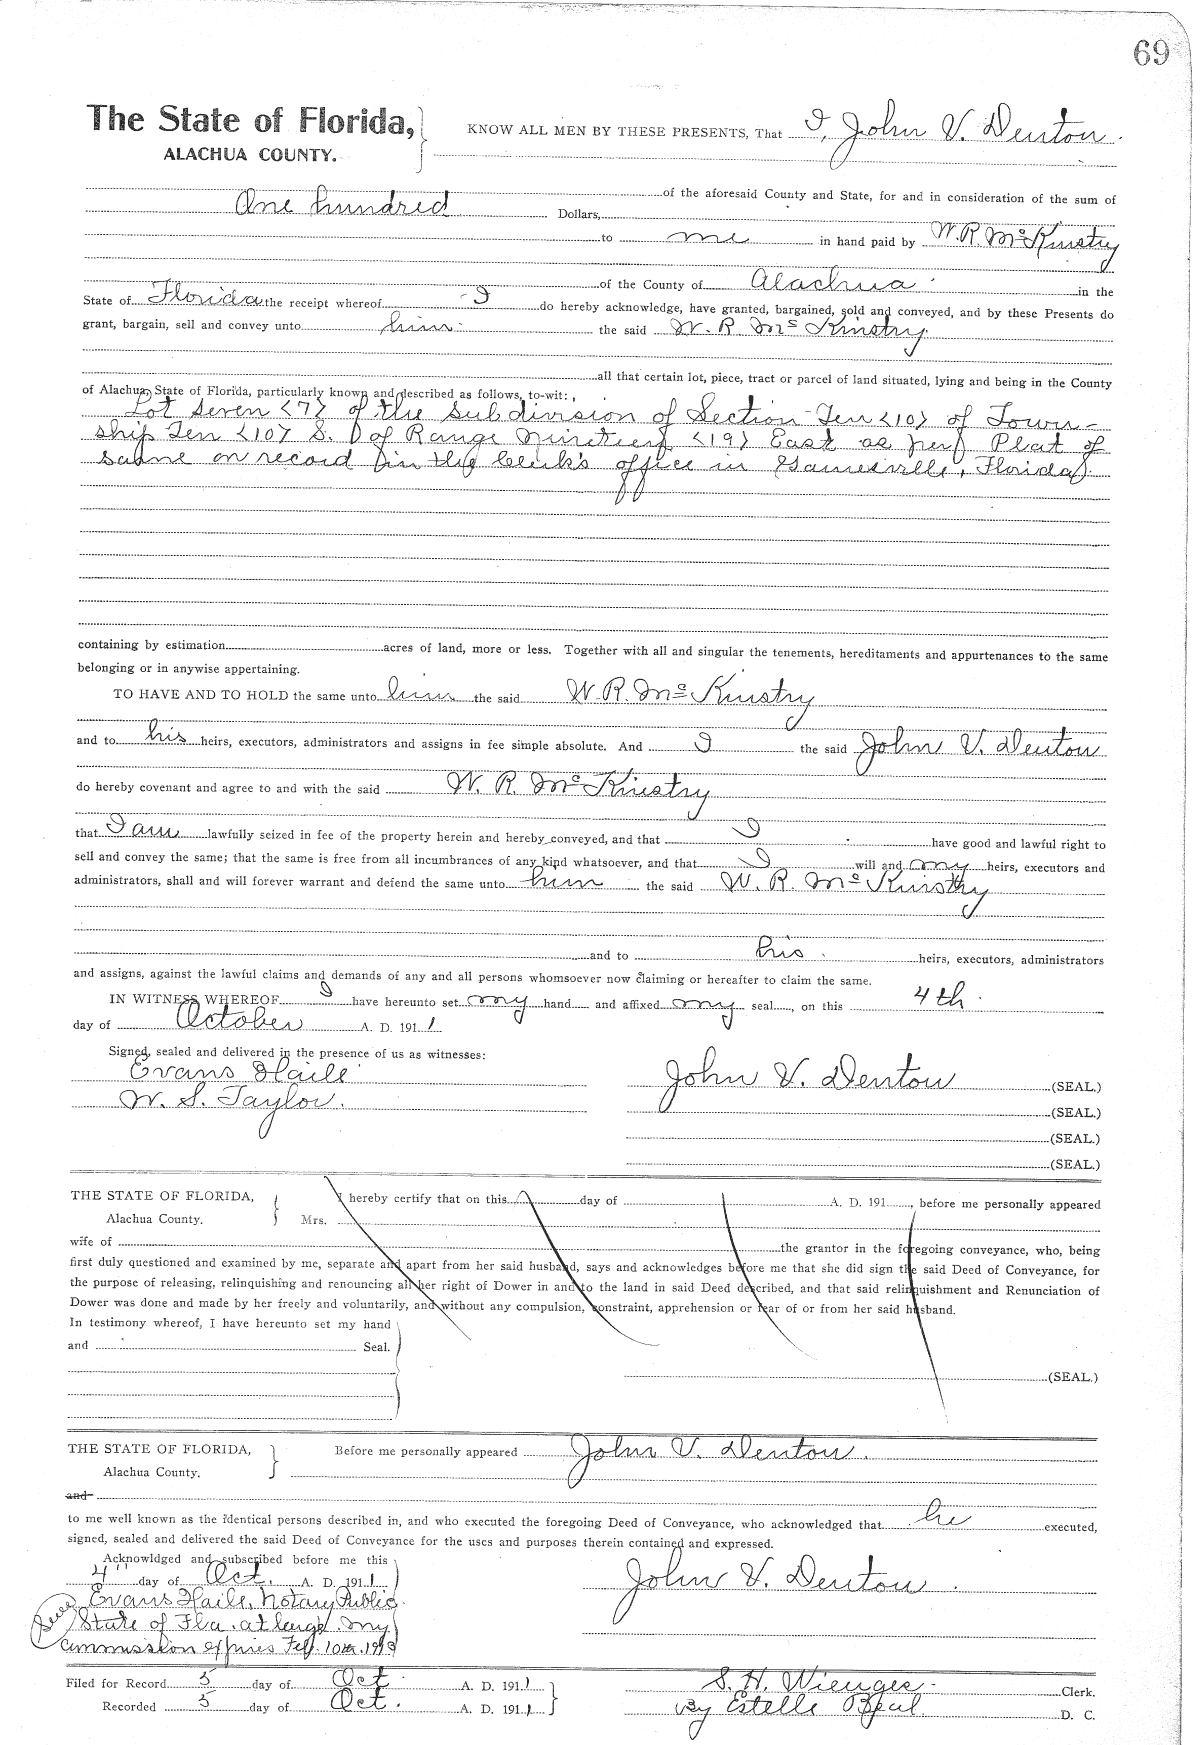 69
The State of Florida, KNOW ALL MEN BY THESE PRESENTS, That I, John V. Denton.
ALACHUA COUNTY.
of the aforesaid County and State, for and in consideration of the sum of
One hundred Dollars,
to me in hand paid by W. R. McKinstry
of the County of Alachua in the
State of Florida the receipt whereof I do hereby acknowledge, have granted, bargained, sold and conveyed, and by these Presents do
grant, bargain, sell and convey unto him the said W. R. McKinstry.
all that certain lot, piece, tract or parcel of land situated, lying and being in the County
of Alachua, State of Florida, particularly known and described as follows, to-wit:
Lot Seven <7> of the subdivision of Section Ten <10> of Town-
ship Ten <10> S. of Range Nineteen <19> East as per Plat of
same on record in the Clerk's office in Gainesville, Florida.
containing by estimation acres of land, more or less. Together with all and singular the tenements, hereditaments and appurtenances to the same
belonging or in anywise appertaining.
TO HAVE AND TO HOLD the same unto him the said W. R. McKinstry
and to his heirs, executors, administrators and assigns in fee simple absolute. And I the said John V. Denton
do hereby covenant and agree to and with the said W. R. McKinstry
that I am lawfully seized in fee of the property herein and hereby conveyed, and that I have good and lawful right to
sell and convey the same; that the same is free from all incumbrances of any kind whatsoever, and that I will and my heirs, executors and
administrators, shall and will forever warrant and defend the same unto him the said W. R. McKinstry
and to his heirs, executors, administrators
and assigns, against the lawful claims and demands of any and all persons whomsoever now claiming or hereafter to claim the same.
IN WITNESS WHEREOF I have hereunto set my hand and affixed my seal, on this 4th.
day of October A. D. 1911
Signed, sealed and delivered in the presence of us as witnesses:
Evans Haile John V. Denton (SEAL.)
W. S. Taylor. (SEAL.)
(SEAL.)
(SEAL.)
THE STATE OF FLORIDA, I hereby certify that on this day of A. D. 191 , before me personally appeared
Alachua County. Mrs.
wife of the grantor in the foregoing conveyance, who, being
first duly questioned and examined by me, separate and apart from her said husband, says and acknowledges before me that she did sign the said Deed of Conveyance, for
the purpose of releasing, relinquishing and renouncing all her right of Dower in and to the land in said Deed described, and that said relinquishment and Renunciation of
Dower was done and made by her freely and voluntarily, and without any compulsion, constraint, apprehension or fear of or from her said husband.
In testimony whereof, I have hereunto set my hand
and Seal.
(SEAL.)
THE STATE OF FLORIDA, Before me personally appeared John V. Denton.
Alachua County.
and
to me well known as the identical persons described in, and who executed the foregoing Deed of Conveyance, who acknowledged that he executed,
signed, sealed and delivered the said Deed of Conveyance for the uses and purposes therein contained and expressed.
Acknowldged and subscribed before me this
4" day of Oct. A. D. 1911 John V. Denton.
Evans Haile, Notary Public
State of Fla. at large. My
commission expires Feb. 10th.
Filed for Record 5 day of Oct A. D. 1911 S. H. Wienges. Clerk.
Recorded 5 day of Oct. A. D. 1911 By Estelle D. C.